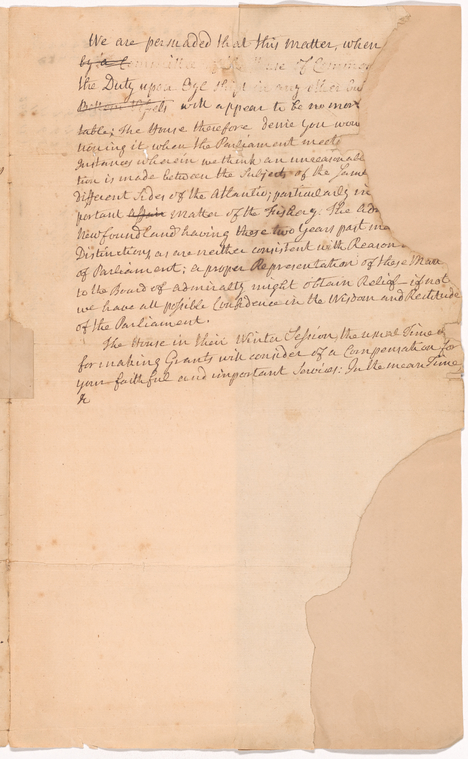 We are persuaded that this matter, when
by a Committee of the House of Commons
the Duty upon Rye shipt in any other but
Bottoms will appear to be no more
table; The House therefore desire you wou
newing it, when the Parliament meets
Instances wherein we think an unreasonable
tion is made between the Subjects of the Same
different Sides of the Atlantic; particularly in
portant affair matter of the Fishery. The Adm
Newfoundland having these two Years past ma
Distinctions as are neither consistent with Reason
of Parliament; a proper Representation of these Matt
to the Board of Admiralty might obtain Relief—if not
we have all possible Confidence in the Wisdom and Rectitude
of the Parliament.
The House in their Winter Session, the usual Time
for making Grants will consider of a Compensation for
your faithful and important Services: In the mean Time
&